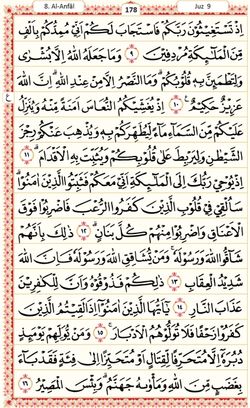 8. Al-Anfâl 178 Juz 9
اِذْ تَسْتَغِيْثُوْنَ رَبَّكُمْ فَاسْتَجَابَ لَكُمْ اَنِّيْ مُمِدُّكُمْ بِاَلْفٍ
مِّنَ الْمَلٰۤىِٕكَةِ مُرْدِفِيْنَ ۝٩ وَمَا جَعَلَهُ اللّٰهُ اِلَّا بُشْرٰى
وَلِتَطْمَىِٕنَّ بِهٖ قُلُوْبُكُمْۗ وَمَا النَّصْرُ اِلَّا مِنْ عِنْدِ اللّٰهِۗ اِنَّ اللّٰهَ
عَزِيْزٌ حَكِيْمٌ ۝١٠ اِذْ يُغَشِّيْكُمُ النُّعَاسَ اَمَنَةً مِّنْهُ وَيُنَزِّلُ
عَلَيْكُمْ مِّنَ السَّمَاۤءِ مَاۤءً لِّيُطَهِّرَكُمْ بِهٖ وَيُذْهِبَ عَنْكُمْ رِجْزَ
الشَّيْطٰنِ وَلِيَرْبِطَ عَلٰى قُلُوْبِكُمْ وَيُثَبِّتَ بِهِ الْاَقْدَامَۗ ۝١١
اِذْ يُوْحِيْ رَبُّكَ اِلَى الْمَلٰۤىِٕكَةِ اَنِّيْ مَعَكُمْ فَثَبِّتُوا الَّذِيْنَ اٰمَنُوْاۗ
سَاُلْقِيْ فِيْ قُلُوْبِ الَّذِيْنَ كَفَرُوا الرُّعْبَ فَاضْرِبُوْا فَوْقَ
الْاَعْنَاقِ وَاضْرِبُوْا مِنْهُمْ كُلَّ بَنَانٍۗ ۝١٢ ذٰلِكَ بِاَنَّهُمْ
شَاۤقُّوا اللّٰهَ وَرَسُوْلَهٗۚ وَمَنْ يُّشَاقِقِ اللّٰهَ وَرَسُوْلَهٗ فَاِنَّ اللّٰهَ
شَدِيْدُ الْعِقَابِ ۝١٣ ذٰلِكُمْ فَذُوْقُوْهُ وَاَنَّ لِلْكٰفِرِيْنَ
عَذَابَ النَّارِ ۝١٤ يٰٓاَيُّهَا الَّذِيْنَ اٰمَنُوْٓا اِذَا لَقِيْتُمُ الَّذِيْنَ
كَفَرُوْا زَحْفًا فَلَا تُوَلُّوْهُمُ الْاَدْبَارَۚ ۝١٥ وَمَنْ يُّوَلِّهِمْ يَوْمَىِٕذٍ
دُبُرَهٗٓ اِلَّا مُتَحَرِّفًا لِّقِتَالٍ اَوْ مُتَحَيِّزًا اِلٰى فِئَةٍ فَقَدْ بَاۤءَ
بِغَضَبٍ مِّنَ اللّٰهِ وَمَأْوٰىهُ جَهَنَّمُۗ وَبِئْسَ الْمَصِيْرُ ۝١٦